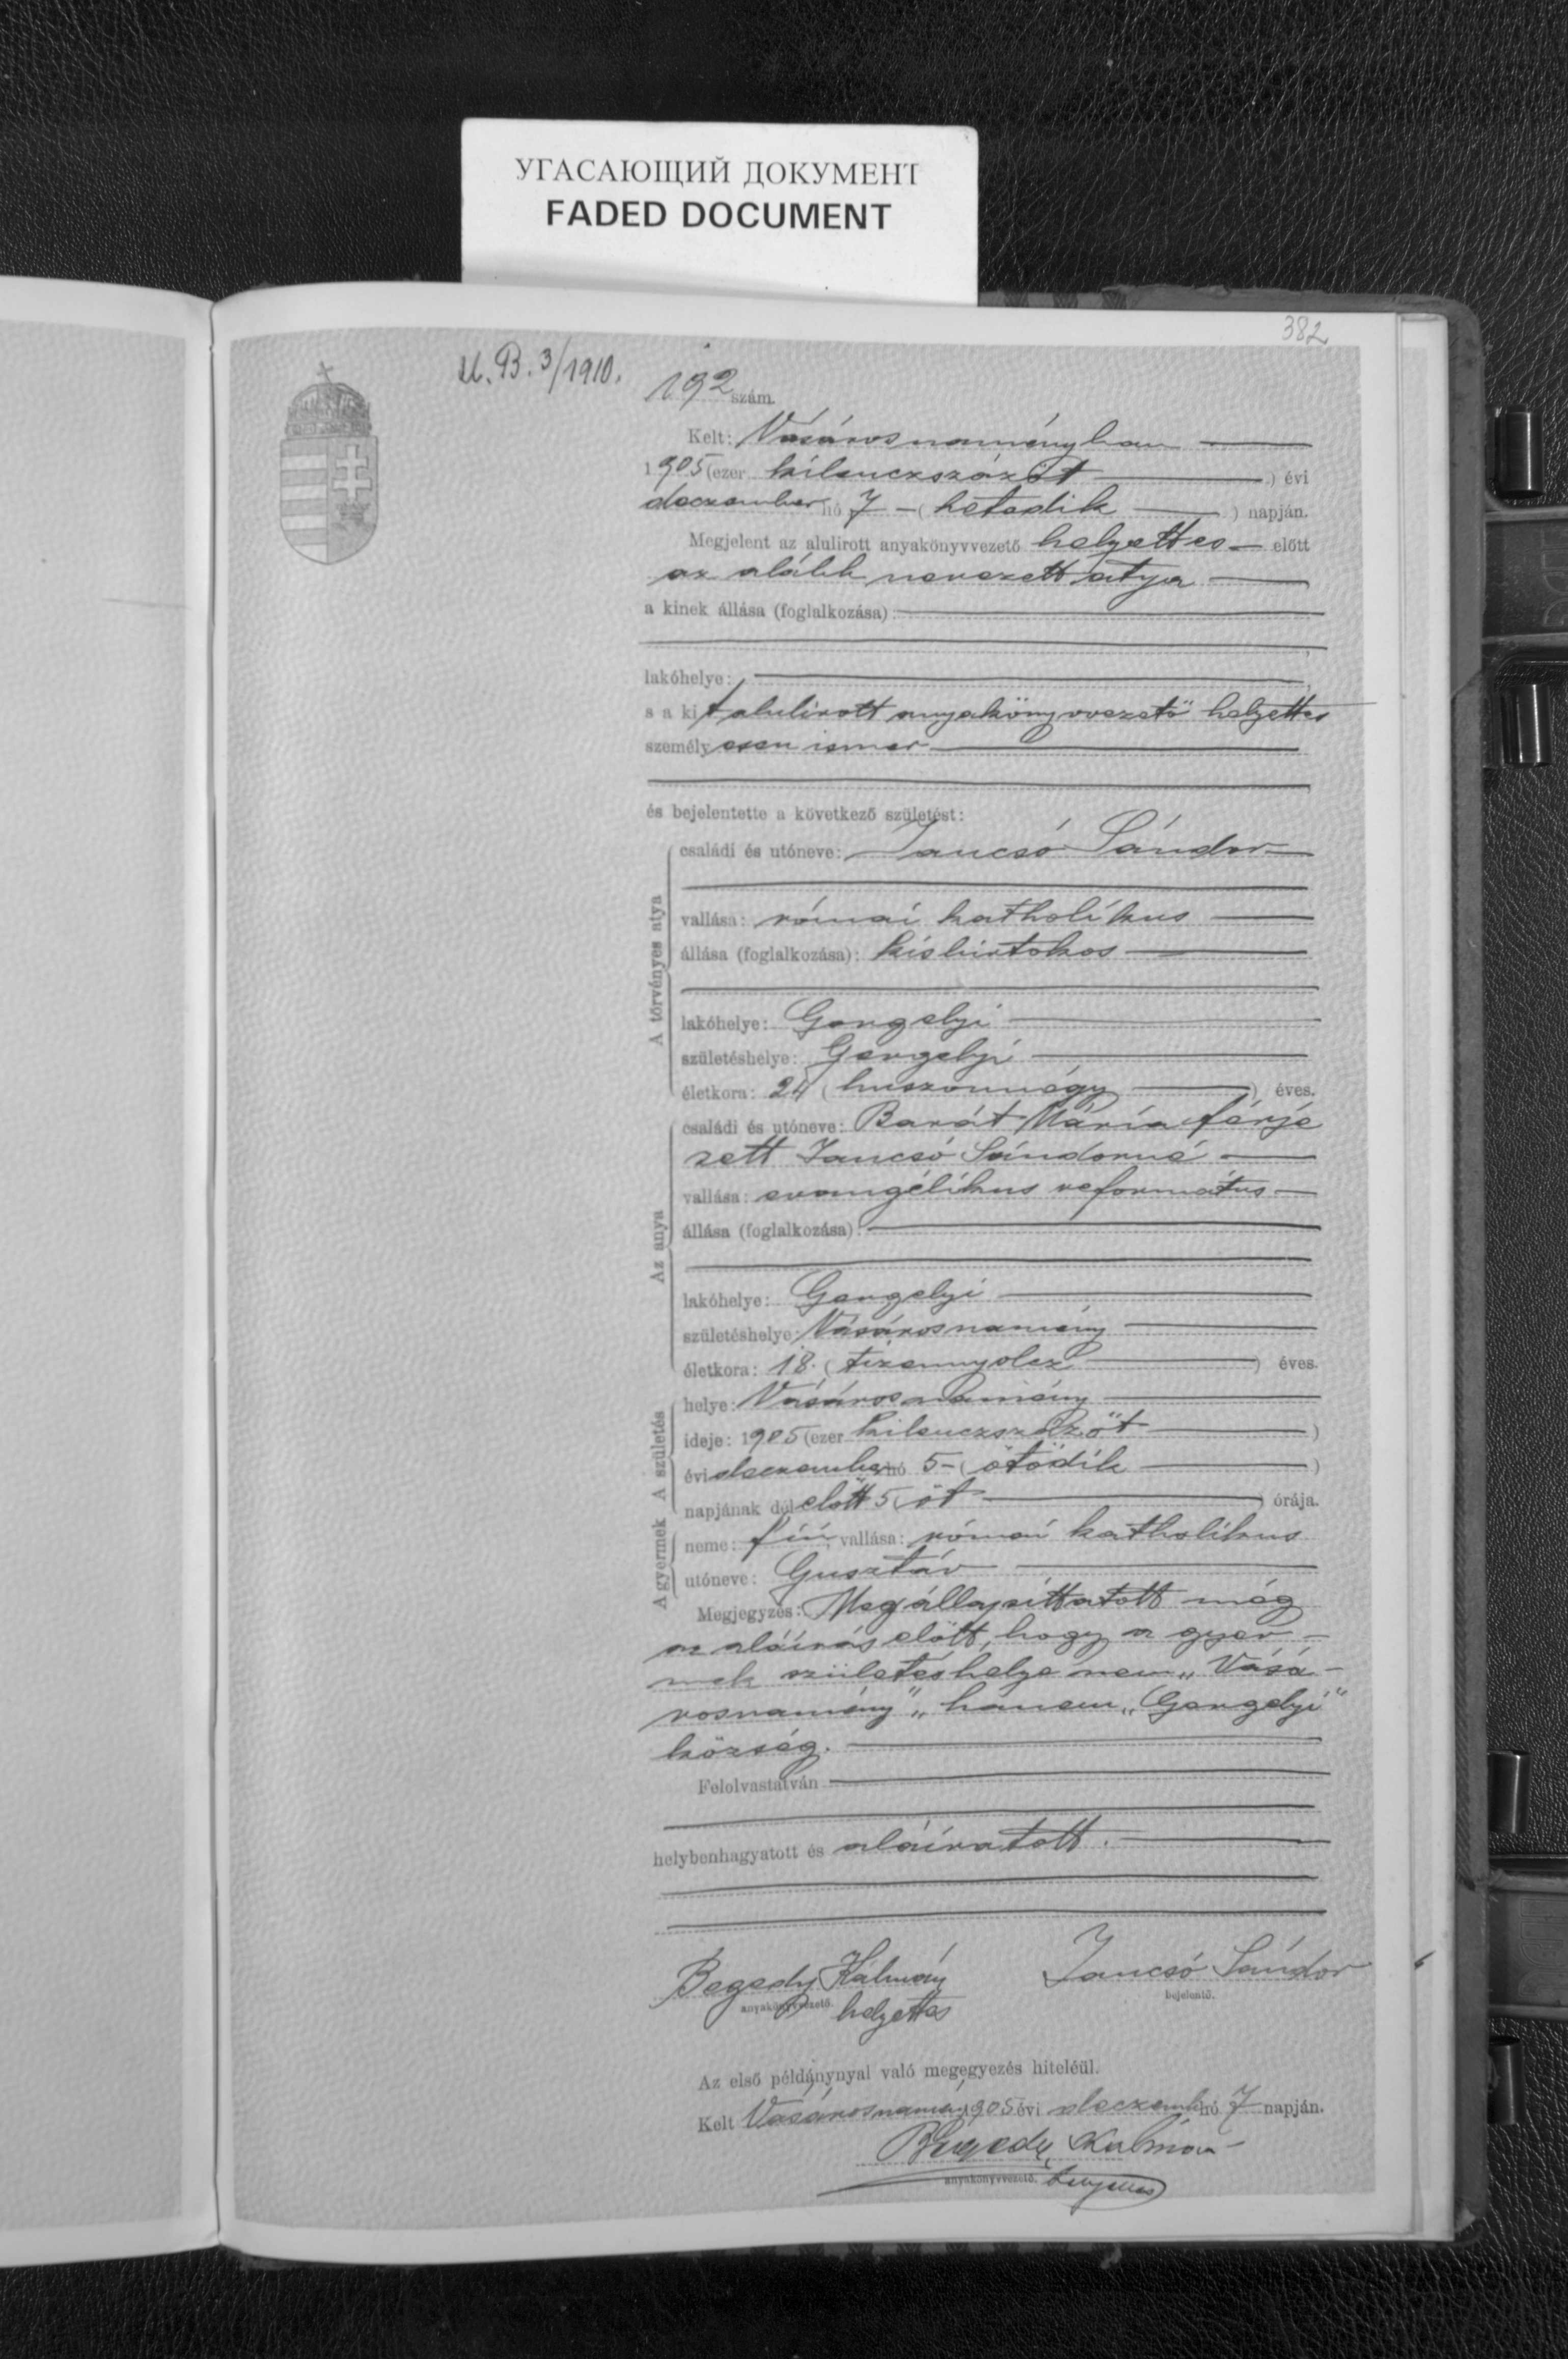 УГАСАЮЩИЙ ДОКУМЕНТ
FADED DOCUMENT
382
U. B. 3/1910.
192 szám.
Kelt: Vásárosnaményban
1905 (ezer kilenczszázöt) évi
deczember hó 7 - (hetedik) napján.
Megjelent az alulirott anyakönyvvezető helyettes előtt
az alább nevezett atya
a kinek állása (foglalkozása):
lakóhelye:
s a kit alulirott anyakönyvvezető helyettes
személyesen ismer
és bejelentette a következő születést:
A törvényes atya
családi és utóneve: Jancsó Sándor
vallása: római katholikus
állása (foglalkozása): kisbirtokos
lakóhelye: Gergelyi
születéshelye: Gergelyi
életkora: 24 (huszonnégy) éves.
Az anya
családi és utóneve: Barát Mária férje
zett Jancsó Sándorné
vallása: evangélikus református
állása (foglalkozása):
lakóhelye: Gergelyi
születéshelye: Vásárosnamény
életkora: 18. (tizennyolcz) éves.
A születés
helye: Vásárosnamény
ideje: 1905 (ezer kilenczszázöt)
évi deczember hó 5 - (ötödik)
napjának dél előtt 5 (öt) órája.
A gyermek
neme: fiú, vallása: római katholikus
utóneve: Gusztáv
Megjegyzés: Megállapíttatott még
az aláírás előtt, hogy a gyer-
mek születéshelye nem „Vásá-
rosnamény", hanem „Gergelyi"
község.
Felolvastatván
helybenhagyatott és aláíratott.
Begedy Kálmán
anyakönyvvezető. helyettes
Jancsó Sándor
bejelentő.
Az első példánynyal való megegyezés hiteléül.
Kelt Vásárosnamény 1905 évi deczemb hó 7 napján.
Begedy Kálmán
anyakönyvvezető. helyettes